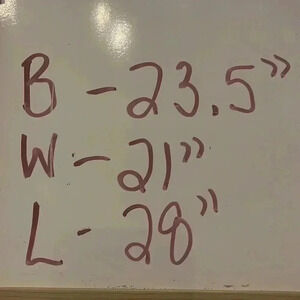 B - 23.5"
W - 21"
L - 28"